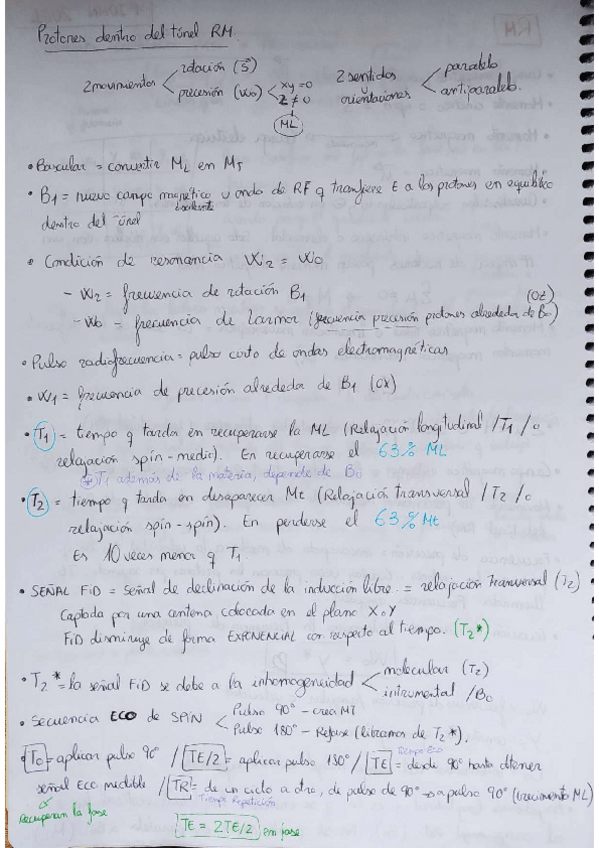 Protones dentro del túnel RM.
2 movimientos < rotación (S) precesión (W0) < xy = 0 z ≠ 0 2 sentidos u orientaciones < paralelo antiparalelo.
ML
• Bascular = convertir ML en MT
• B1 = nuevo campo magnético oscilante u onda de RF q transfiere E a los protones en equilibrio
dentro del túnel
• Condición de resonancia W2 = W0
- W2 = frecuencia de rotación B1
- W0 = frecuencia de Larmor (frecuencia precesión protones alrededor de B0) (OZ)
• Pulso radiofrecuencia = pulso corto de ondas electromagnéticas
• W1 = frecuencia de precesión alrededor de B1 (OX)
• T1 = tiempo q tarda en recuperarse la ML (Relajación longitudinal / T1 / o
relajación spin-medio). En recuperarse el 63% ML
T1 además de la materia, depende de B0
• T2 = tiempo q tarda en desaparecer Mt (Relajación transversal / T2 / o
relajación spin-spin). En perderse el 63% Mt
Es 10 veces menor q T1
• SEÑAL FiD = señal de declinación de la inducción libre = relajación transversal (T2)
Captada por una antena colocada en el plano X o Y
FiD disminuye de forma EXPONENCIAL con respecto al tiempo. (T2*)
• T2* = la señal FiD se debe a la inhomogeneidad < molecular (T2) instrumental / B0
• Secuencia ECO de SPIN < Pulso 90° - crea MT Pulso 180° - Refase (libramos de T2*).
• T0 = aplicar pulso 90° / TE/2 = aplicar pulso 180° / TE = desde 90° hasta obtener
Tiempo Eco
señal ECO medible / TR = de un ciclo a otro, de pulso de 90° → a pulso 90° (crecimiento ML)
Tiempo Repetición
Recuperan la fase
TE = 2TE/2 en fase